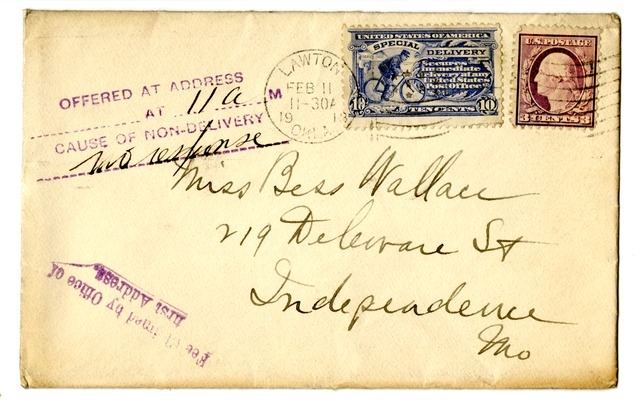 OFFERED AT ADDRESS
AT 11 a M
CAUSE OF NON-DELIVERY
no response
LAWTON
FEB 11
11-30A
1918
OKLA.
UNITED STATES OF AMERICA
SPECIAL DELIVERY
Secures
immediate
delivery at any
United States
Post Office
10 TEN CENTS 10
U.S. POSTAGE
3 CENTS 3
Miss Bess Wallace
219 Deleware St
Independence
Mo
Fee claimed by Office of
first Address.